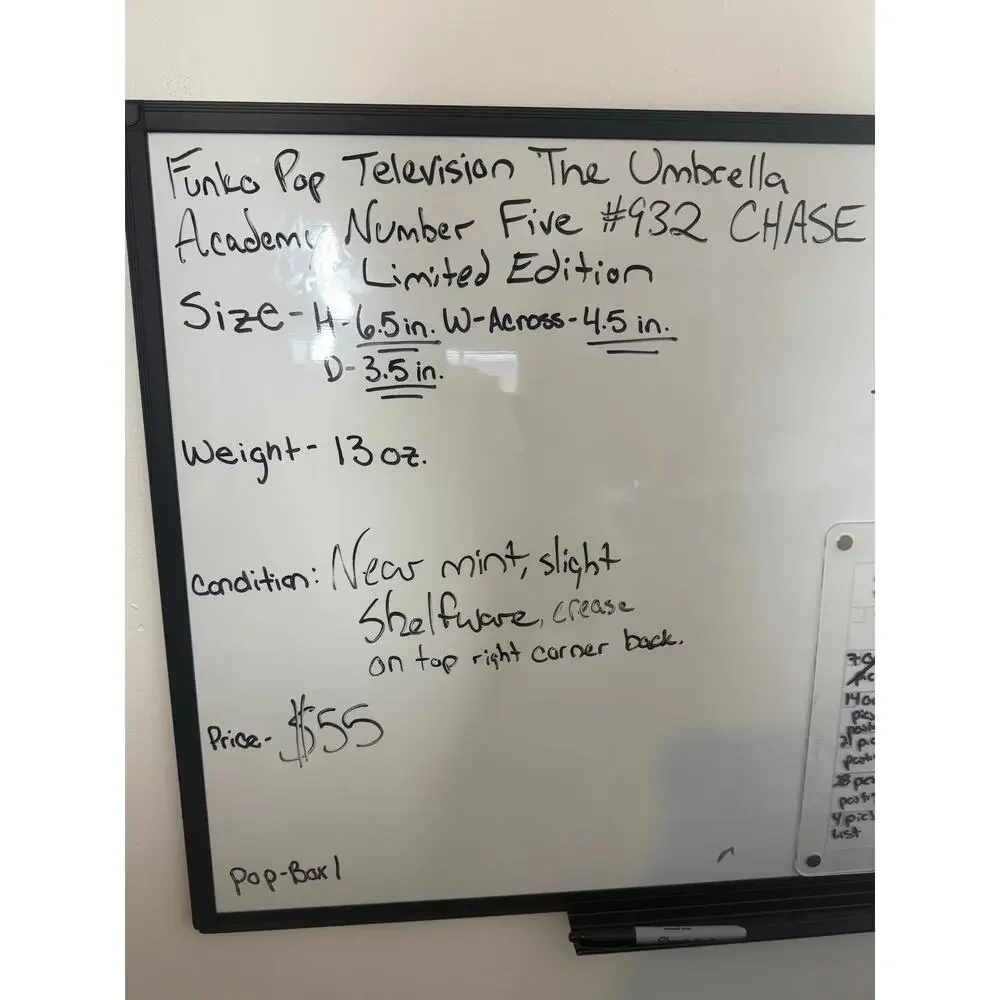 Funko Pop Television The Umbrella
Academy Number Five #932 CHASE
Limited Edition
Size- H-6.5in. W-Across-4.5 in.
D-3.5 in.
Weight- 13 oz.
Condition: Near mint, slight
Shelfware, crease
on top right corner back.
Price- $55
Pop-Box 1
14
pics
21 pic
28
4 pics
list